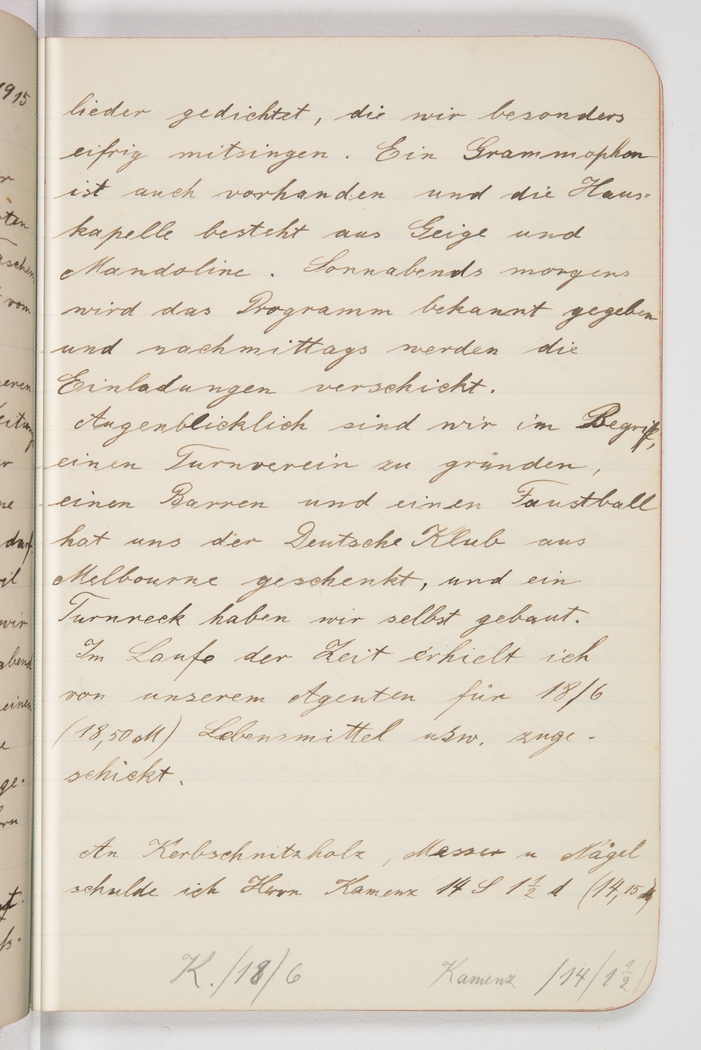 1915
lieder gedichtet, die wir besonders
eifrig mitsingen. Ein Grammophon
ist auch vorhanden und die Haus-
kapelle besteht aus Geige und
Mandoline. Sonnabends morgens
wird das Programm bekannt gegeben
und nachmittags werden die
Einladungen verschickt.
Augenblicklich sind wir im Begriff,
einen Turnverein zu gründen,
einen Barren und einen Faustball
hat uns der Deutsche Klub aus
Melbourne geschenkt, und ein
Turnreck haben wir selbst gebaut.
Im Laufe der Zeit erhielt ich
von unserem Agenten für 18/6
(18,50 M) Lebensmittel usw. zuge-
schickt.
An Kerbschnitzholz, Messer u Nägel
schulde ich Herrn Kamenz 14 S 1 1/2 d (14,15 M)
K. /18/6 Kamenz /14/1 1/2